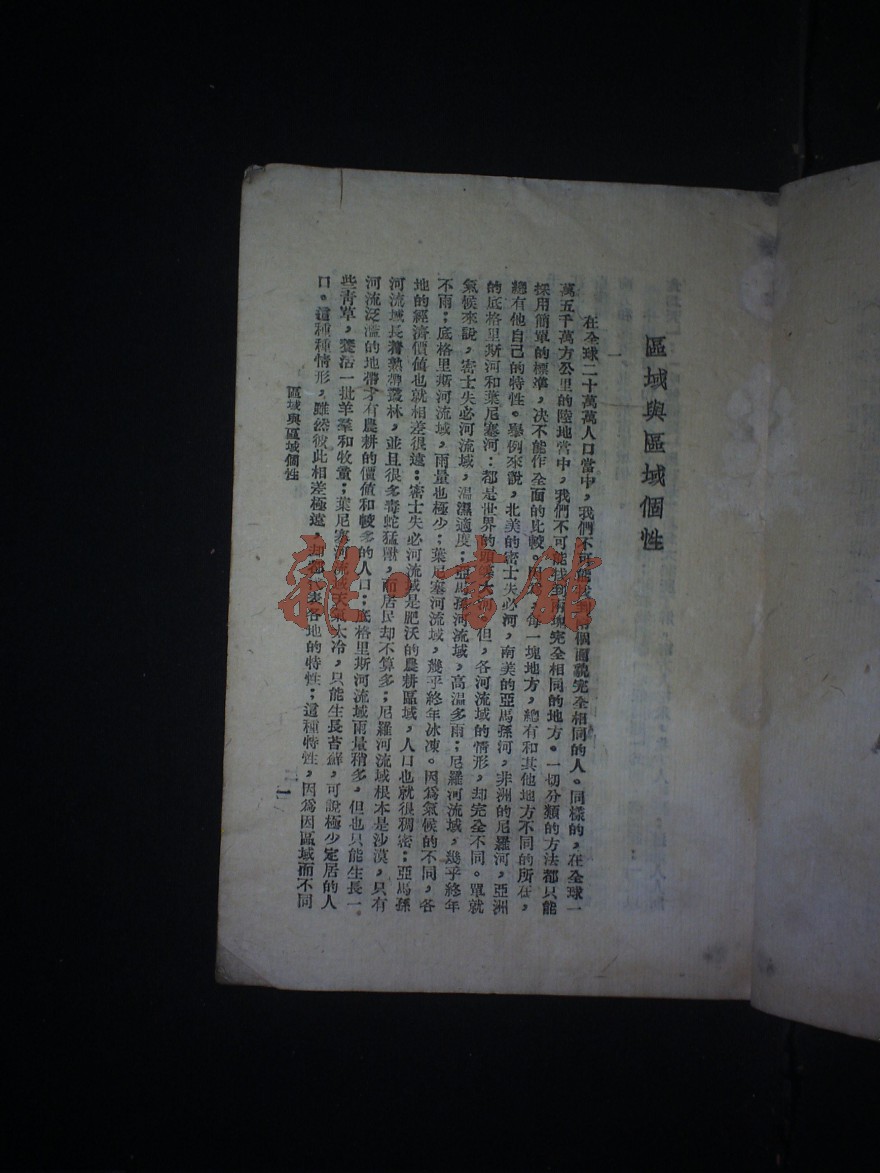 區域與區域個性
一
在全球二十萬萬人口當中，我們不可能找到兩個面貌完全相同的人。同樣的，在全球一
萬五千萬方公里的陸地當中，我們不可能找到兩塊完全相同的地方。一切分類的方法都只能
採用簡單的標準，決不能作全面的比較。因爲，每一塊地方，總有和其他地方不同的所在，
總有他自己的特性。舉例來說，北美的密士失必河，南美的亞馬孫河，非洲的尼羅河，亞洲
的底格里斯河和葉尼塞河：都是世界的 大河。但，各河流域的情形，却完全不同。單就
氣候來說，密士失必河流域，溫濕適度；亞馬孫河流域，高溫多雨；尼羅河流域，幾乎終年
不雨；底格里斯河流域，雨量也極少；葉尼塞河流域，幾乎終年冰凍。因爲氣候的不同，各
地的經濟價值也就相差很遠：密士失必河流域是肥沃的農耕區域，人口也就很稠密；亞馬孫
河流域長着熱帶叢林，並且很多毒蛇猛獸，而居民却不算多；尼羅河流域根本是沙漠，只有
河流泛濫的地帶才有農耕的價值和較多的人口；底格里斯河流域雨量稍多，但也只能生長一
些青草，養活一批羊羣和牧童；葉尼塞河流域天氣太冷，只能生長苔蘚，可說極少定居的人
口。這種種情形，雖然彼此相差極遠，却都代表各地的特性；這種特性，因爲因區域而不同
區域與區域個性
二一
雜·書館